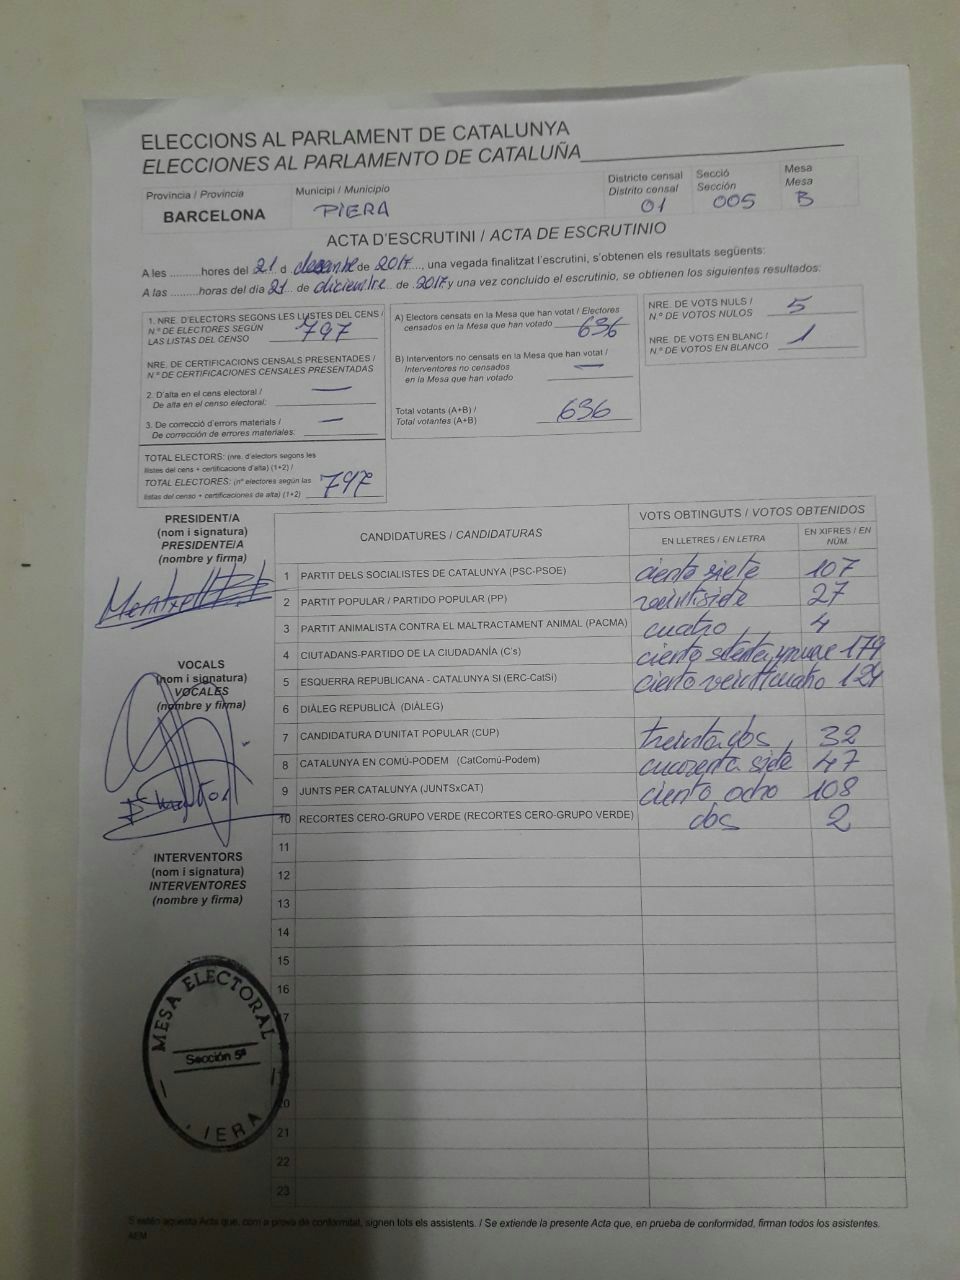 ELECCIONS AL PARLAMENT DE CATALUNYA
ELECCIONES AL PARLAMENTO DE CATALUÑA
Provincia / Provincia
BARCELONA
Municipi / Municipio
PIERA
Districte censal
Distrito censal
01
Secció
Sección
005
Mesa
Mesa
B
ACTA D'ESCRUTINI / ACTA DE ESCRUTINIO
A les .........hores del 21 d de 2017, una vegada finalitzat l'escrutini, s'obtenen els resultats següents:
A las .........horas del día 21 de diciembre de 2017 y una vez concluido el escrutinio, se obtienen los siguientes resultados:
1. NRE. D'ELECTORS SEGONS LES LLISTES DEL CENS /
N.º DE ELECTORES SEGÚN
LAS LISTAS DEL CENSO
797
NRE. DE CERTIFICACIONS CENSALS PRESENTADES /
N.º DE CERTIFICACIONES CENSALES PRESENTADAS
2. D'alta en el cens electoral /
De alta en el censo electoral: —
3. De correcció d'errors materials /
De corrección de errores materiales: —
TOTAL ELECTORS: (nre. d'electors segons les
llistes del cens + certificacions d'alta) (1+2) /
TOTAL ELECTORES: (nº electores según las
listas del censo + certificaciones de alta) (1+2)
797
A) Electors censats en la Mesa que han votat / Electores
censados en la Mesa que han votado
636
B) Interventors no censats en la Mesa que han votat /
Interventores no censados
en la Mesa que han votado
—
Total votants (A+B) /
Total votantes (A+B)
636
NRE. DE VOTS NULS /
N.º DE VOTOS NULOS
5
NRE. DE VOTS EN BLANC /
N.º DE VOTOS EN BLANCO
1
PRESIDENT/A
(nom i signatura)
PRESIDENTE/A
(nombre y firma)
VOCALS
(nom i signatura)
VOCALES
(nombre y firma)
INTERVENTORS
(nom i signatura)
INTERVENTORES
(nombre y firma)
MESA ELECTORAL
Sección 5ª
IERA
CANDIDATURES / CANDIDATURAS
VOTS OBTINGUTS / VOTOS OBTENIDOS
EN LLETRES / EN LETRA
EN XIFRES / EN NÚM.
1 PARTIT DELS SOCIALISTES DE CATALUNYA (PSC-PSOE) ciento siete 107
2 PARTIT POPULAR / PARTIDO POPULAR (PP) veintisiete 27
3 PARTIT ANIMALISTA CONTRA EL MALTRACTAMENT ANIMAL (PACMA) cuatro 4
4 CIUTADANS-PARTIDO DE LA CIUDADANÍA (C's) ciento 179
5 ESQUERRA REPUBLICANA - CATALUNYA SI (ERC-CatSí) ciento veinticuatro 124
6 DIÀLEG REPUBLICÀ (DIÀLEG)
7 CANDIDATURA D'UNITAT POPULAR (CUP) treinta dos 32
8 CATALUNYA EN COMÚ-PODEM (CatComú-Podem) cuarenta siete 47
9 JUNTS PER CATALUNYA (JUNTSxCAT) ciento ocho 108
10 RECORTES CERO-GRUPO VERDE (RECORTES CERO-GRUPO VERDE) dos 2
11
12
13
14
15
16
7
20
21
22
23
S'estén aquesta Acta que, com a prova de conformitat, signen tots els assistents. / Se extiende la presente Acta que, en prueba de conformidad, firman todos los asistentes.